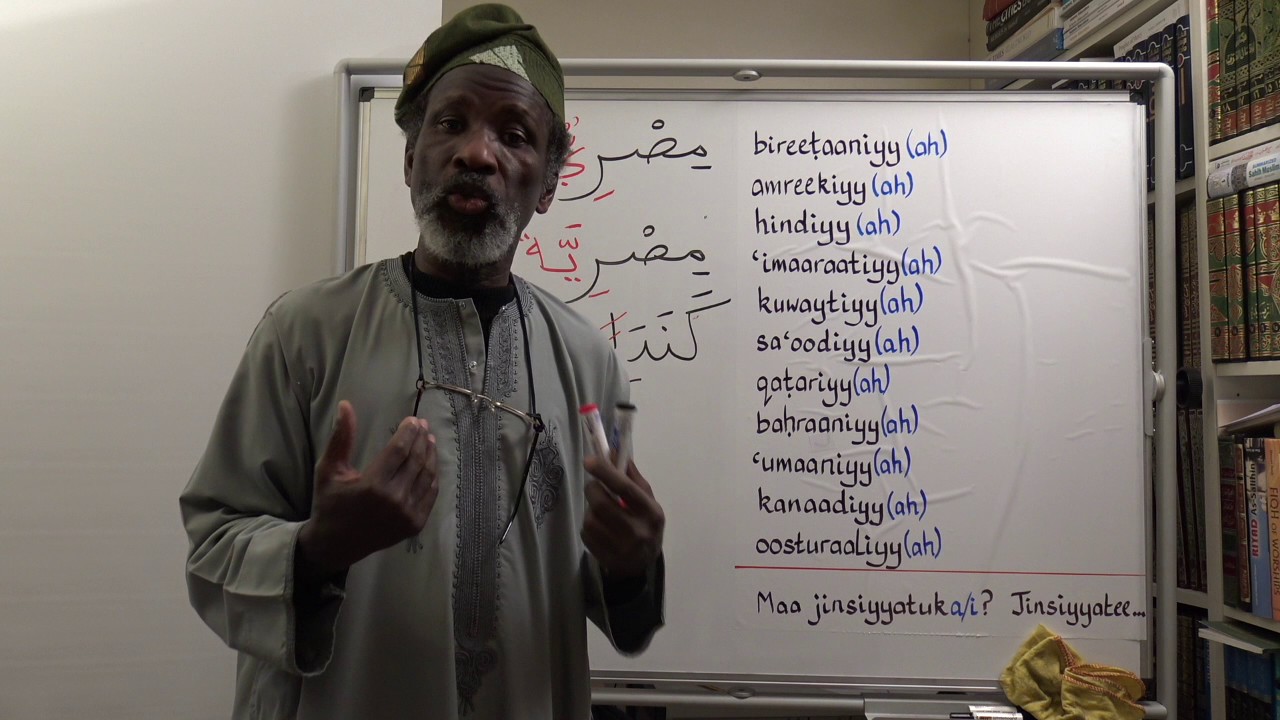 مِصْرِيٌّ
مِصْرِيَّة
كَنَدَا
bireeṭaaniyy (ah)
amreekiyy (ah)
hindiyy (ah)
‘imaaraatiyy (ah)
kuwaytiyy (ah)
sa‘oodiyy (ah)
qaṭariyy (ah)
baḥraaniyy (ah)
‘umaaniyy (ah)
kanaadiyy (ah)
oosturaaliyy (ah)
Maa jinsiyyatuka/i? Jinsiyyatee...
Sahih Muslim